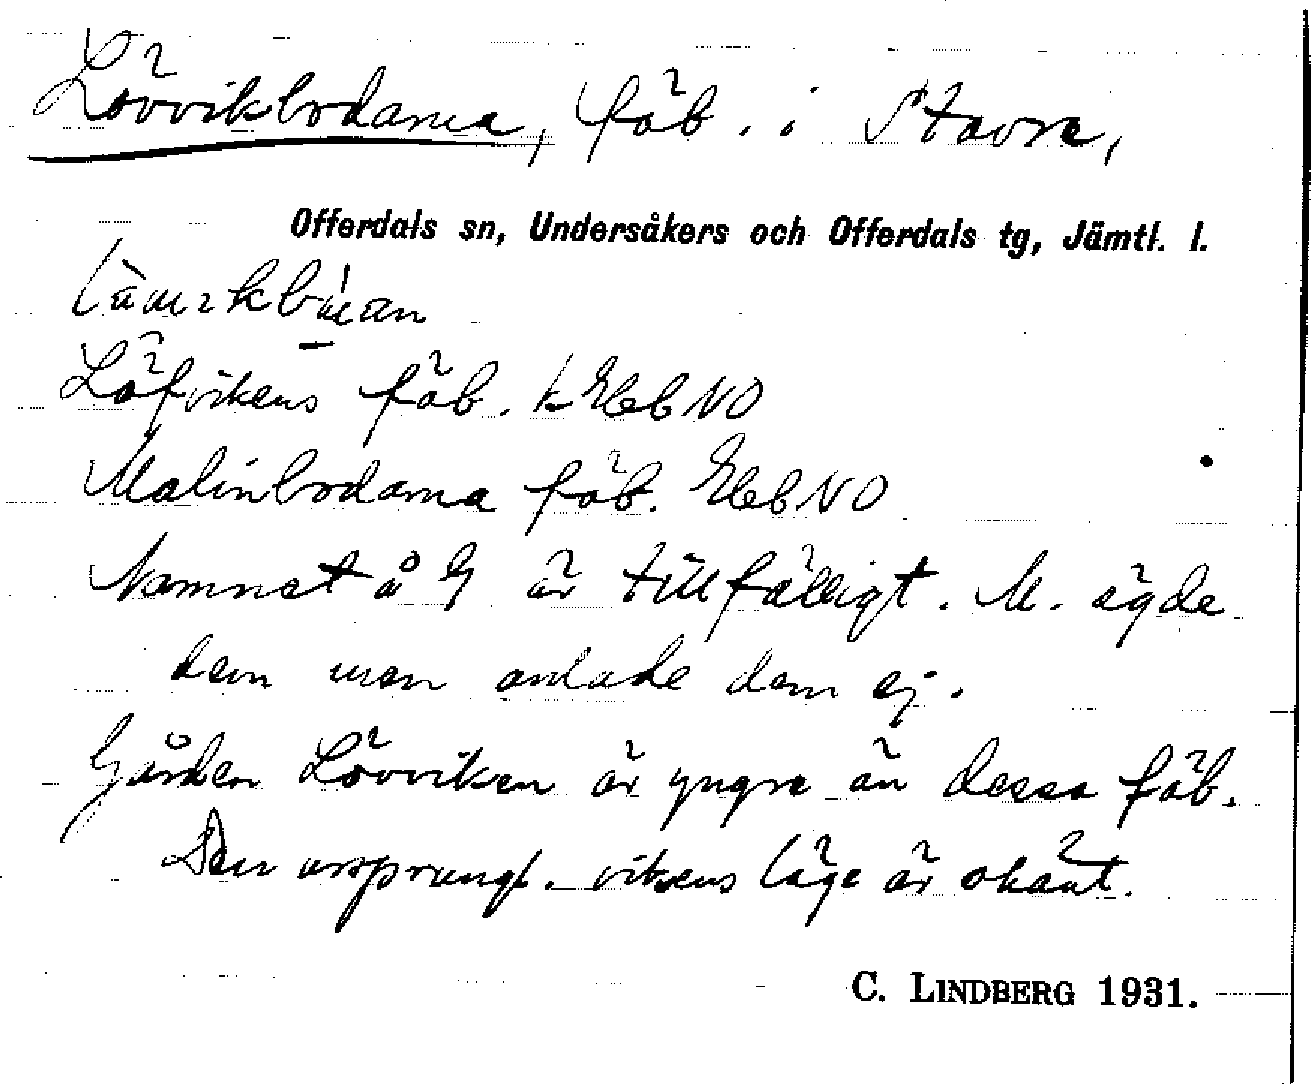 Lövvikbodarna, fäb. i Stavre,
Offerdals sn, Undersåkers och Offerdals tg, Jämtl. l.
Löfvikens fäb. k HebNO
Malinbodarna fäb. HebNO
Namnet å G är tillfälligt. M. ägde
dem men anlade dem ej.
Gården Lövviken är yngre än dessa fäb.
Den ursprungl. vikens läge är okänt.
C. LINDBERG 1931.